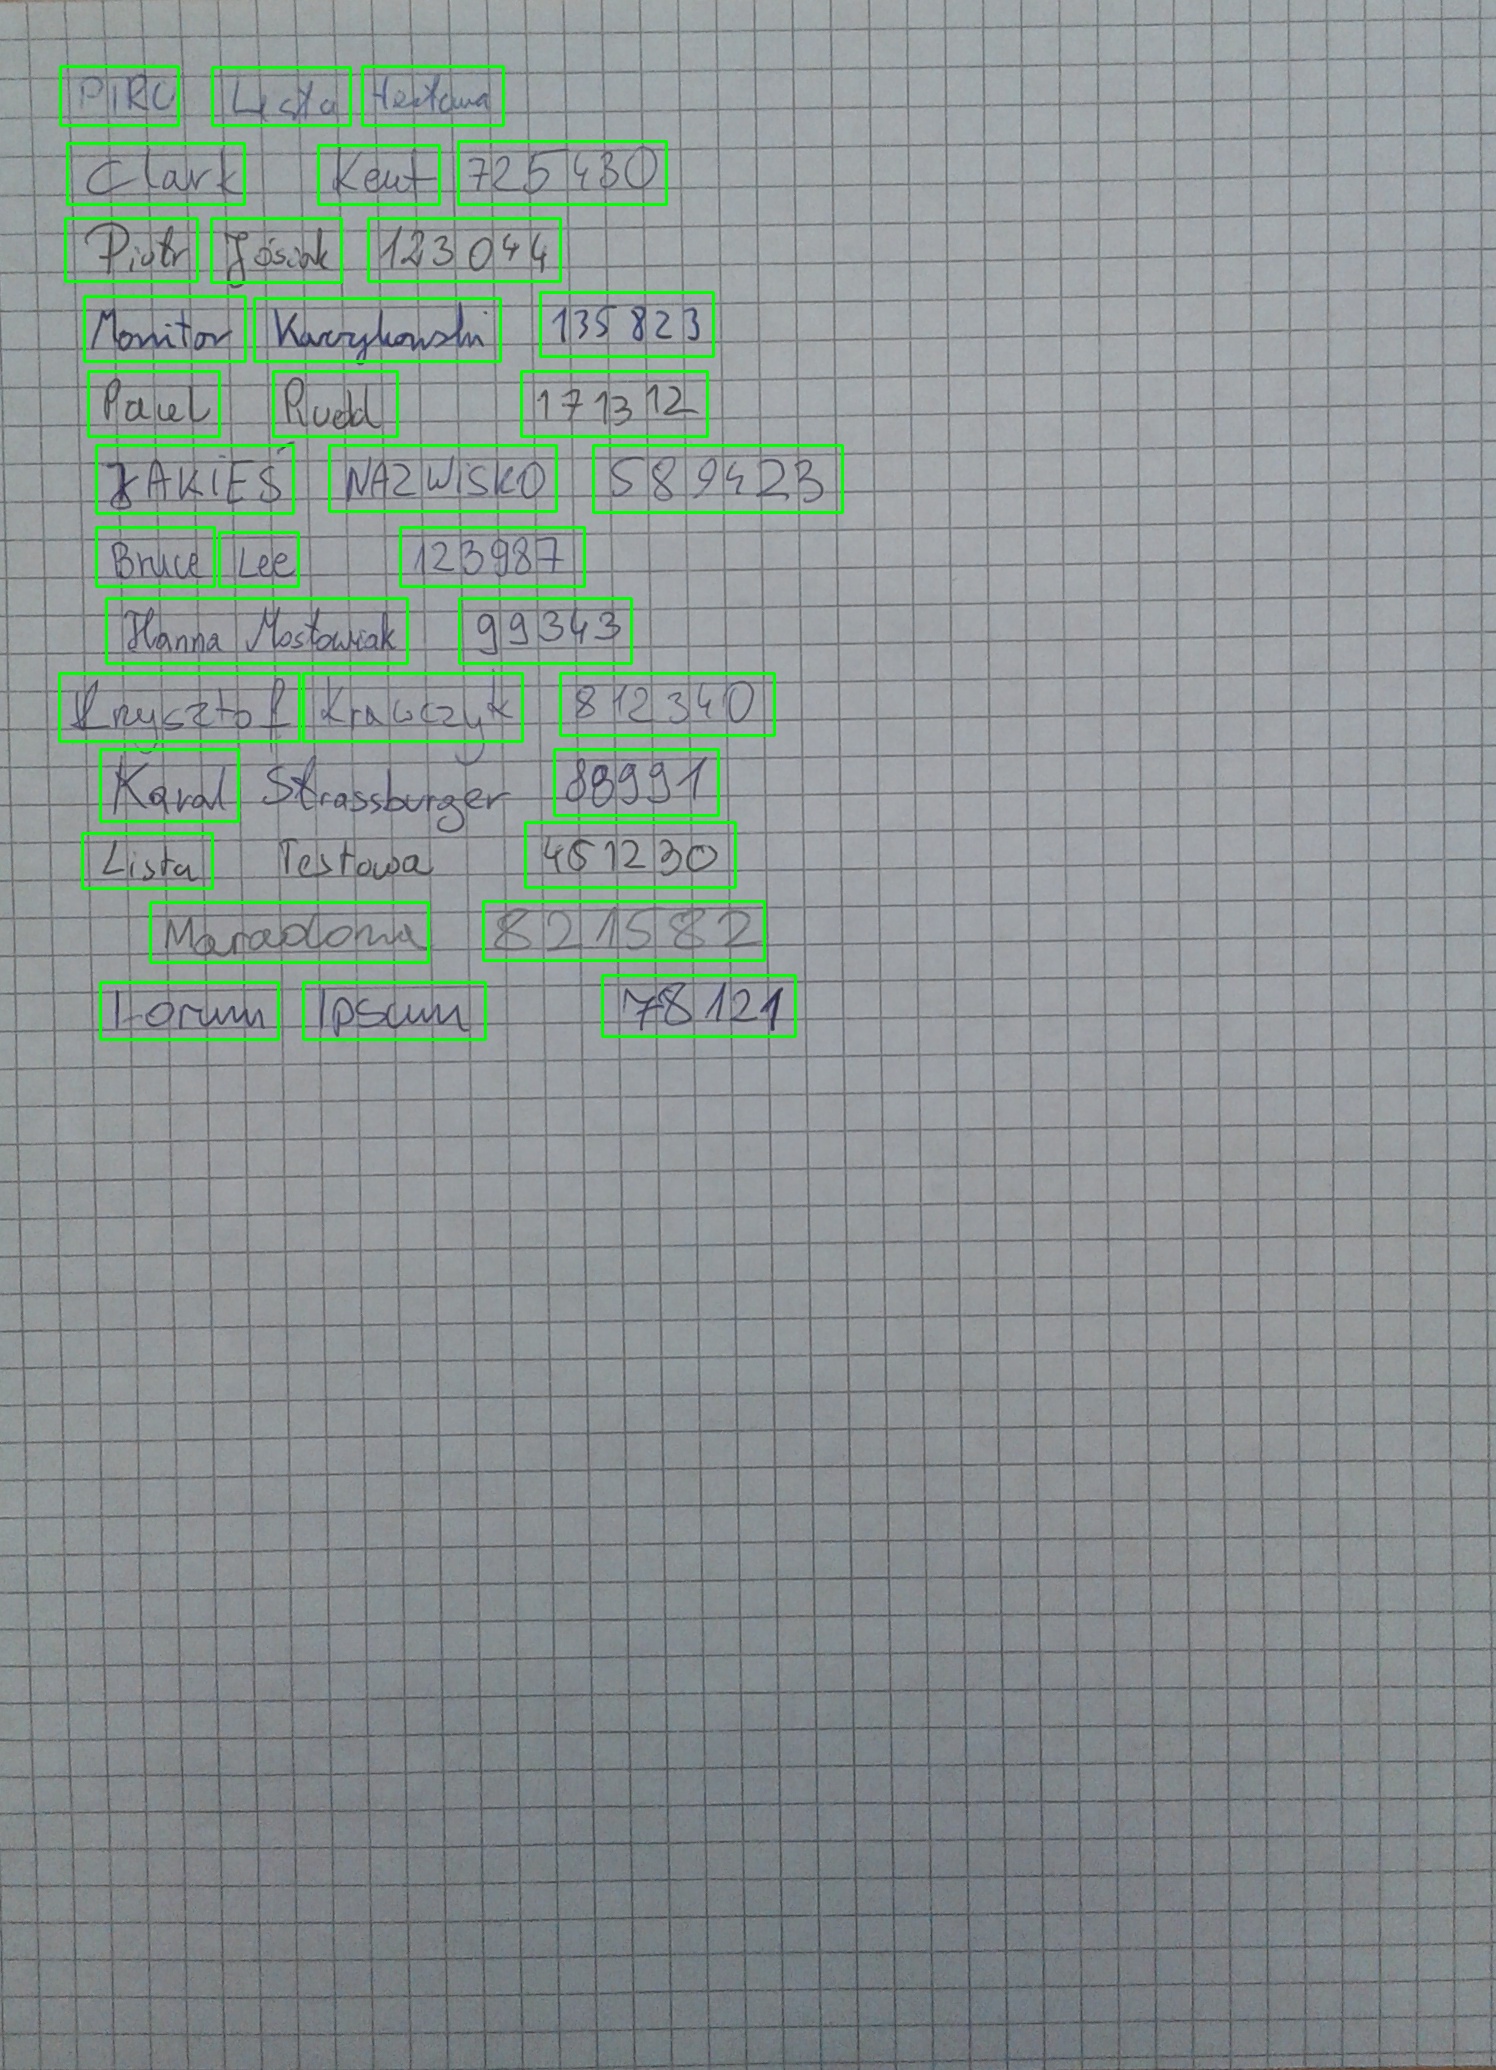 PIRO Lista testowa
Clark Kent 725430
Piotr Jósiak 123044
Monitor Karzykowski 135823
Paul Rudd 171312
JAKIEŚ NAZWISKO 589423
Bruce Lee 123987
Hanna Mostowiak 99343
Krysztof Krawczyk 812340
Karol Strassburger 88991
Lista Testowa 451230
Maradona 821582
Lorum Ipsum 78121